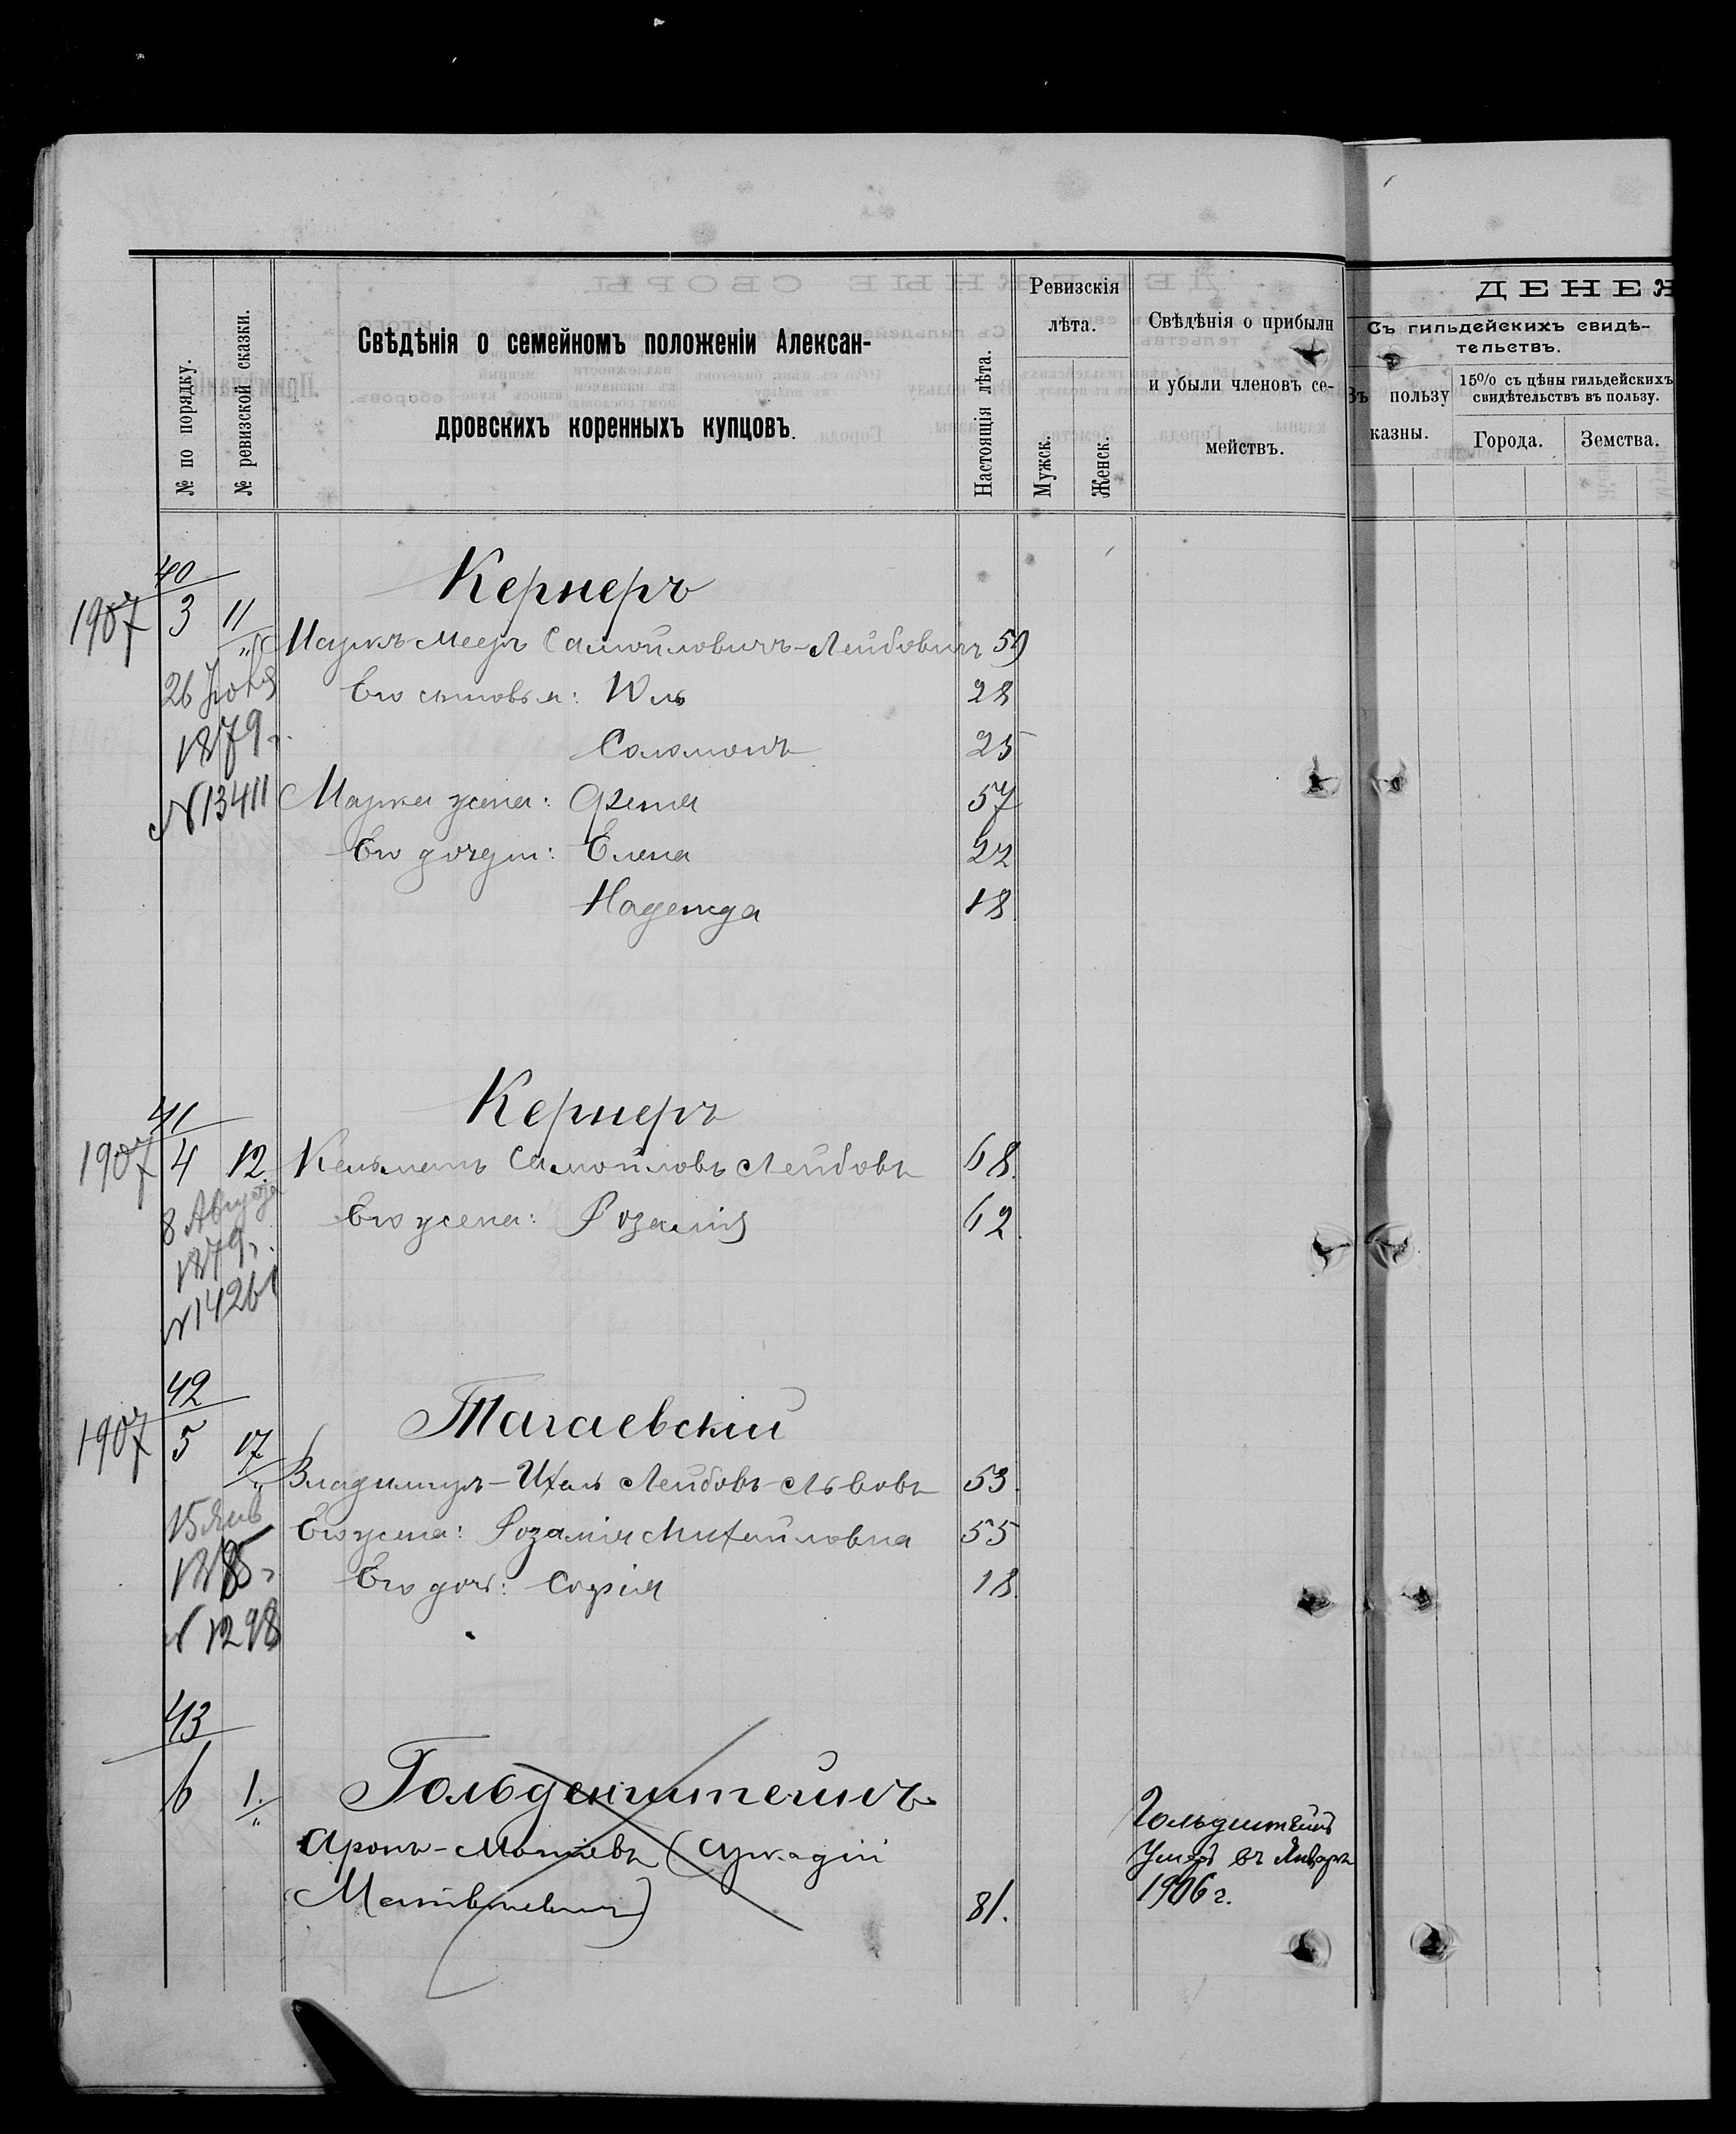 № по порядку.
№ ревизской сказки.
Свѣдѣнія о семейномъ положеніи Алексан-
дровскихъ коренныхъ купцовъ.
Настоящія лѣта.
Ревизскія
лѣта.
Мужск.
Женск.
Свѣдѣнія о прибыли
и убыли членовъ се-
мействъ.
ДЕНЕЖ
Съ гильдейскихъ свидѣ-
тельствъ.
Въ пользу
казны.
15% съ цѣны гильдейскихъ
свидѣтельствъ въ пользу.
Города.
Земства.
40
Кернеръ
1907 3 11
Маркъ-Мееръ Самойловичъ-Лейбовичъ 59
26 Іюня
Его сыновья: Юль 28
1879 г.
Соломонъ 25
N 13411 Марка жена: Феня 57
Его дочери: Елена 22
Надежда 18
41
Кернеръ
1907 4 12. Кельманъ Самойловъ Лейбовъ 68.
8 Августа
Его жена: Розалія 62
1879 г.
N 14261
42
Тагаевскій
1907 5 17
Владимиръ-Ихель Лейбовъ-Львовъ 53.
15 Янв
Его жена: Розалія Михайловна 55
1885 г
Его дочь: Софія 18.
N 1298
43
6 1. Гольденштейнъ
Аронъ- (Аркадій
Матвѣевичъ) 81.
Умеръ въ Январѣ
1906 г.